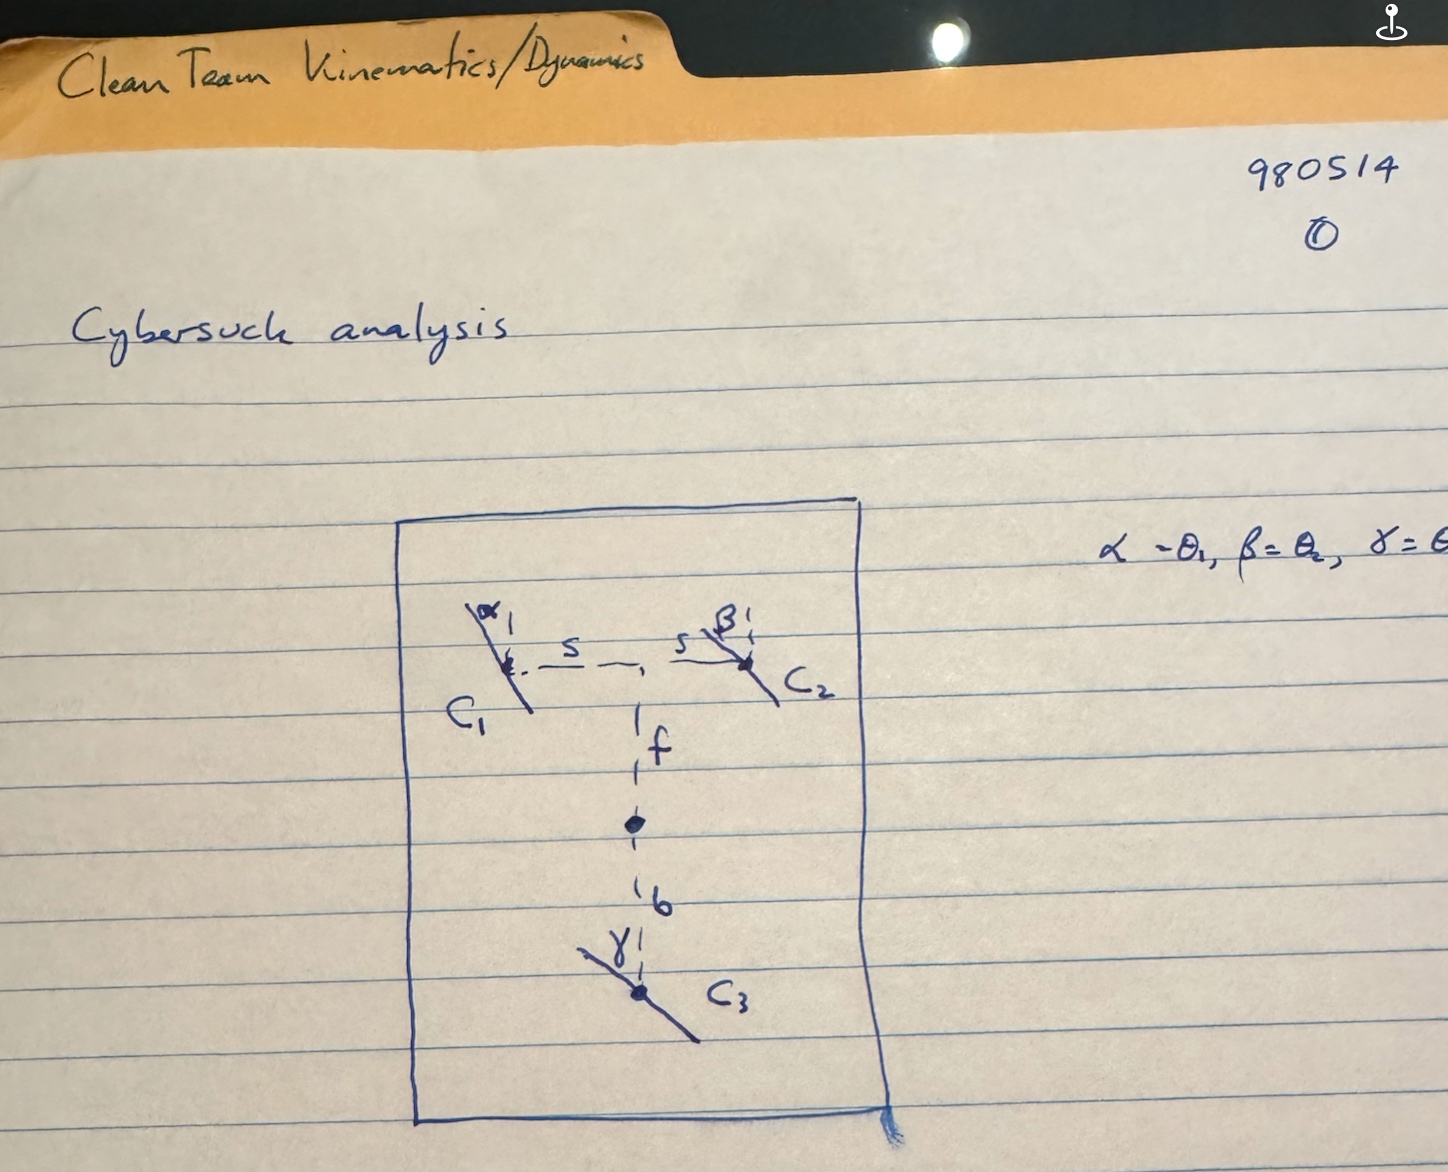 Clean Team Kinematics/Dynamics
980514
①
Cybersuck analysis
α = θ₁, β = θ₂, γ = θ
α
β
s
s
C₁
C₂
f
b
γ
C₃